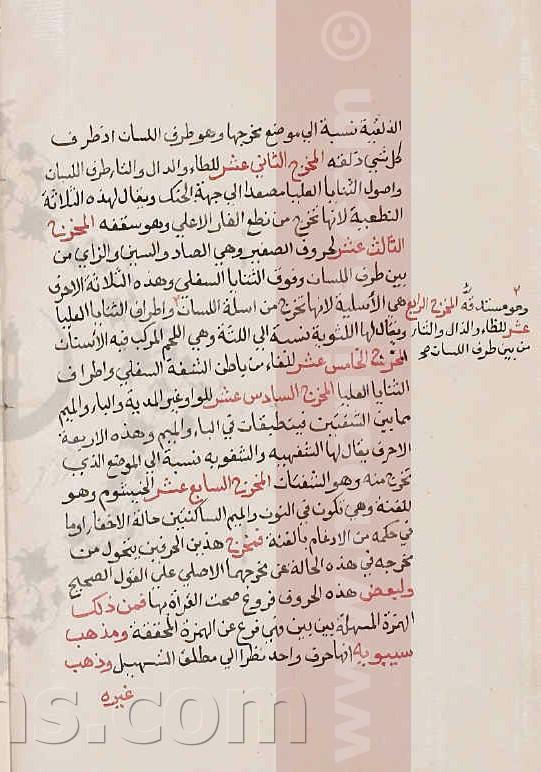 الذلقية نسبة الي موضع مخرجها وهو طرف اللسان اذ طرف
كل شي ذلقه المخرج الثاني عشر للطاء والدال والتا من طرف اللسان
واصول الثنايا العليا مصعدا الي جهة الحنك ويقال لهذه الثلاثة
النطعية لانها تخرج من نطع الغار الاعلي وهو سقفه المخرج
الثالث عشر لحروف الصفير وهي الصاد والسين والزاي من
بين طرف اللسان وفوق الثنايا السفلي وهذه الثلاثة الاحرف
هي الأسلية لانها تخرج من اسلة اللسان واطراف الثنايا العليا
ويقال لها اللثوية نسبة الي اللثة وهي اللحم المركب فيه الأسنان
المخرج الخامس عشر للفاء من باطن الشفة السفلي واطراف
الثنايا العليا المخرج السادس عشر للواو غير المدية والباء والميم
مما بين الشفتين فينطبقان في الباء والميم وهذه الاربعة
الاحرف يقال لها الشفهيه والشفويه نسبة الي الموضع الذي
تخرج منه وهو الشفتان المخرج السابع عشر الخيشوم وهو
للغنة وهي تكون في النون والميم الساكنتين حالة الاخفا او ما
في حكمه من الادغام بالغنة فمخرج هذين الحرفين يتحول من
مخرجه في هذه الحالة عن مخرجهما الاصلي علي القول الصحيح
ولبعض هذه الحروف فروع صحت القرأة بها فمن ذلك
الهمزة المسهلة بين بين وهي فرع عن الهمزة المحققة ومذهب
سيبويه انها حرف واحد نظرا الي مطلق التسهيل وذهب
غيره
وهو مستدقه المخرج الرابع
عشر للظاء والذال والثا
من بين طرف اللسان صح
www.
ns.com
©